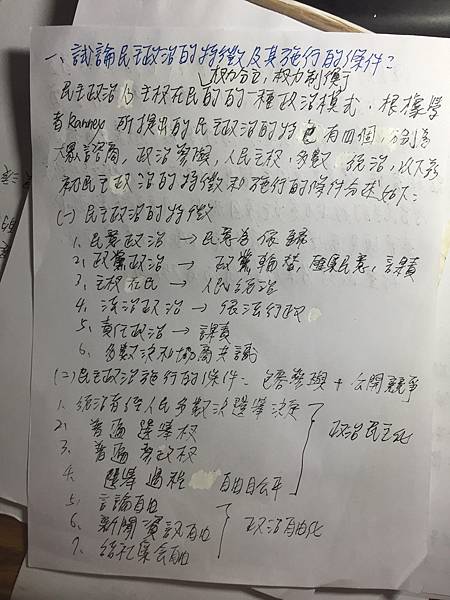 一、試論民主政治的特徵及其施行的條件?
權力分立,權力制衡
民主政治以主權在民的的一種政治模式,根據學
者Ranney所提出的民主政治的特色有四個 分別為
大眾諮商,政治平等,人民主權,多數統治,以下系
初民主政治的特徵和施行的條件分述如下:
(一)民主政治的特徵
1.民意政治→民意為依歸
2.政黨政治→政黨輪替,匯集民意,課責
3.主權在民→人民統治
4.法治政治→依法行政
5.責任政治→課責
6.多數決和協商共識
(二)民主政治施行的條件:包容參與+公開競爭
1.統治者經人民多數決選舉決定
2.普遍選舉權
3.普遍參政權
4.選舉過程 自由且公平
政治民主化
5.言論自由
6.新聞資訊自由
政治自由化
7.結社集會自由